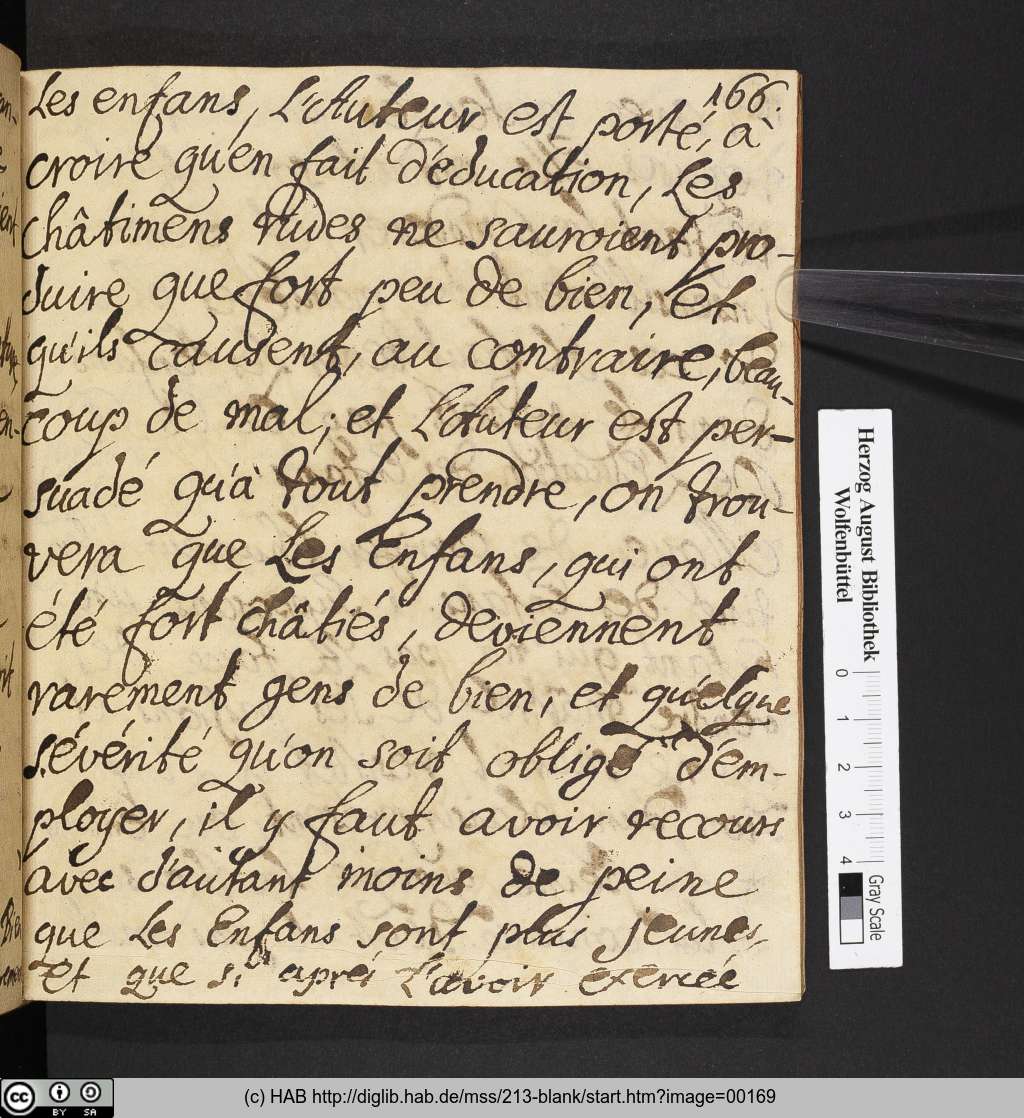 166.
Les enfans, L'Auteur est porté, à
croire qu'en fait d'éducation, Les
châtimens rudes ne sauroient pro-
duire que fort peu de bien, et
qu'ils causent, au contraire, beau-
coup de mal; et L'Auteur est per-
suadé qu'à tout prendre, on trou-
vera que Les Enfans, qui ont
été fort châtiés, deviennent
rarement gens de bien, et quelque
sévérité qu'on soit obligé d'em-
ployer, il y faut avoir recours
avec d'autant moins de peine
que Les Enfans sont plus jeunes,
et que si après L'avoir exercée
Herzog August Bibliothek
Wolfenbüttel
0 1 2 3 4
Gray Scale
cc BY SA
(c) HAB http://diglib.hab.de/mss/213-blank/start.htm?image=00169